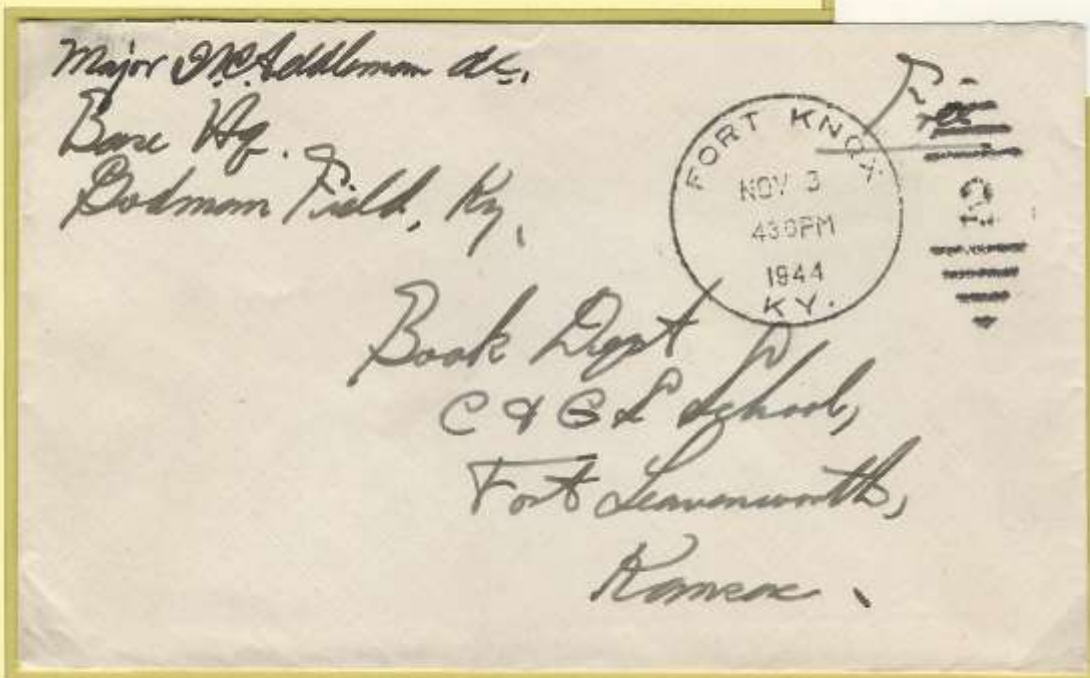 Major Addleman AC.
Base Hq.
Godman Field, Ky,
Free
FORT KNOX
NOV 3
430PM
1944
KY.
Book Dept
C & G S School,
Fort Leavenworth,
Kansas.